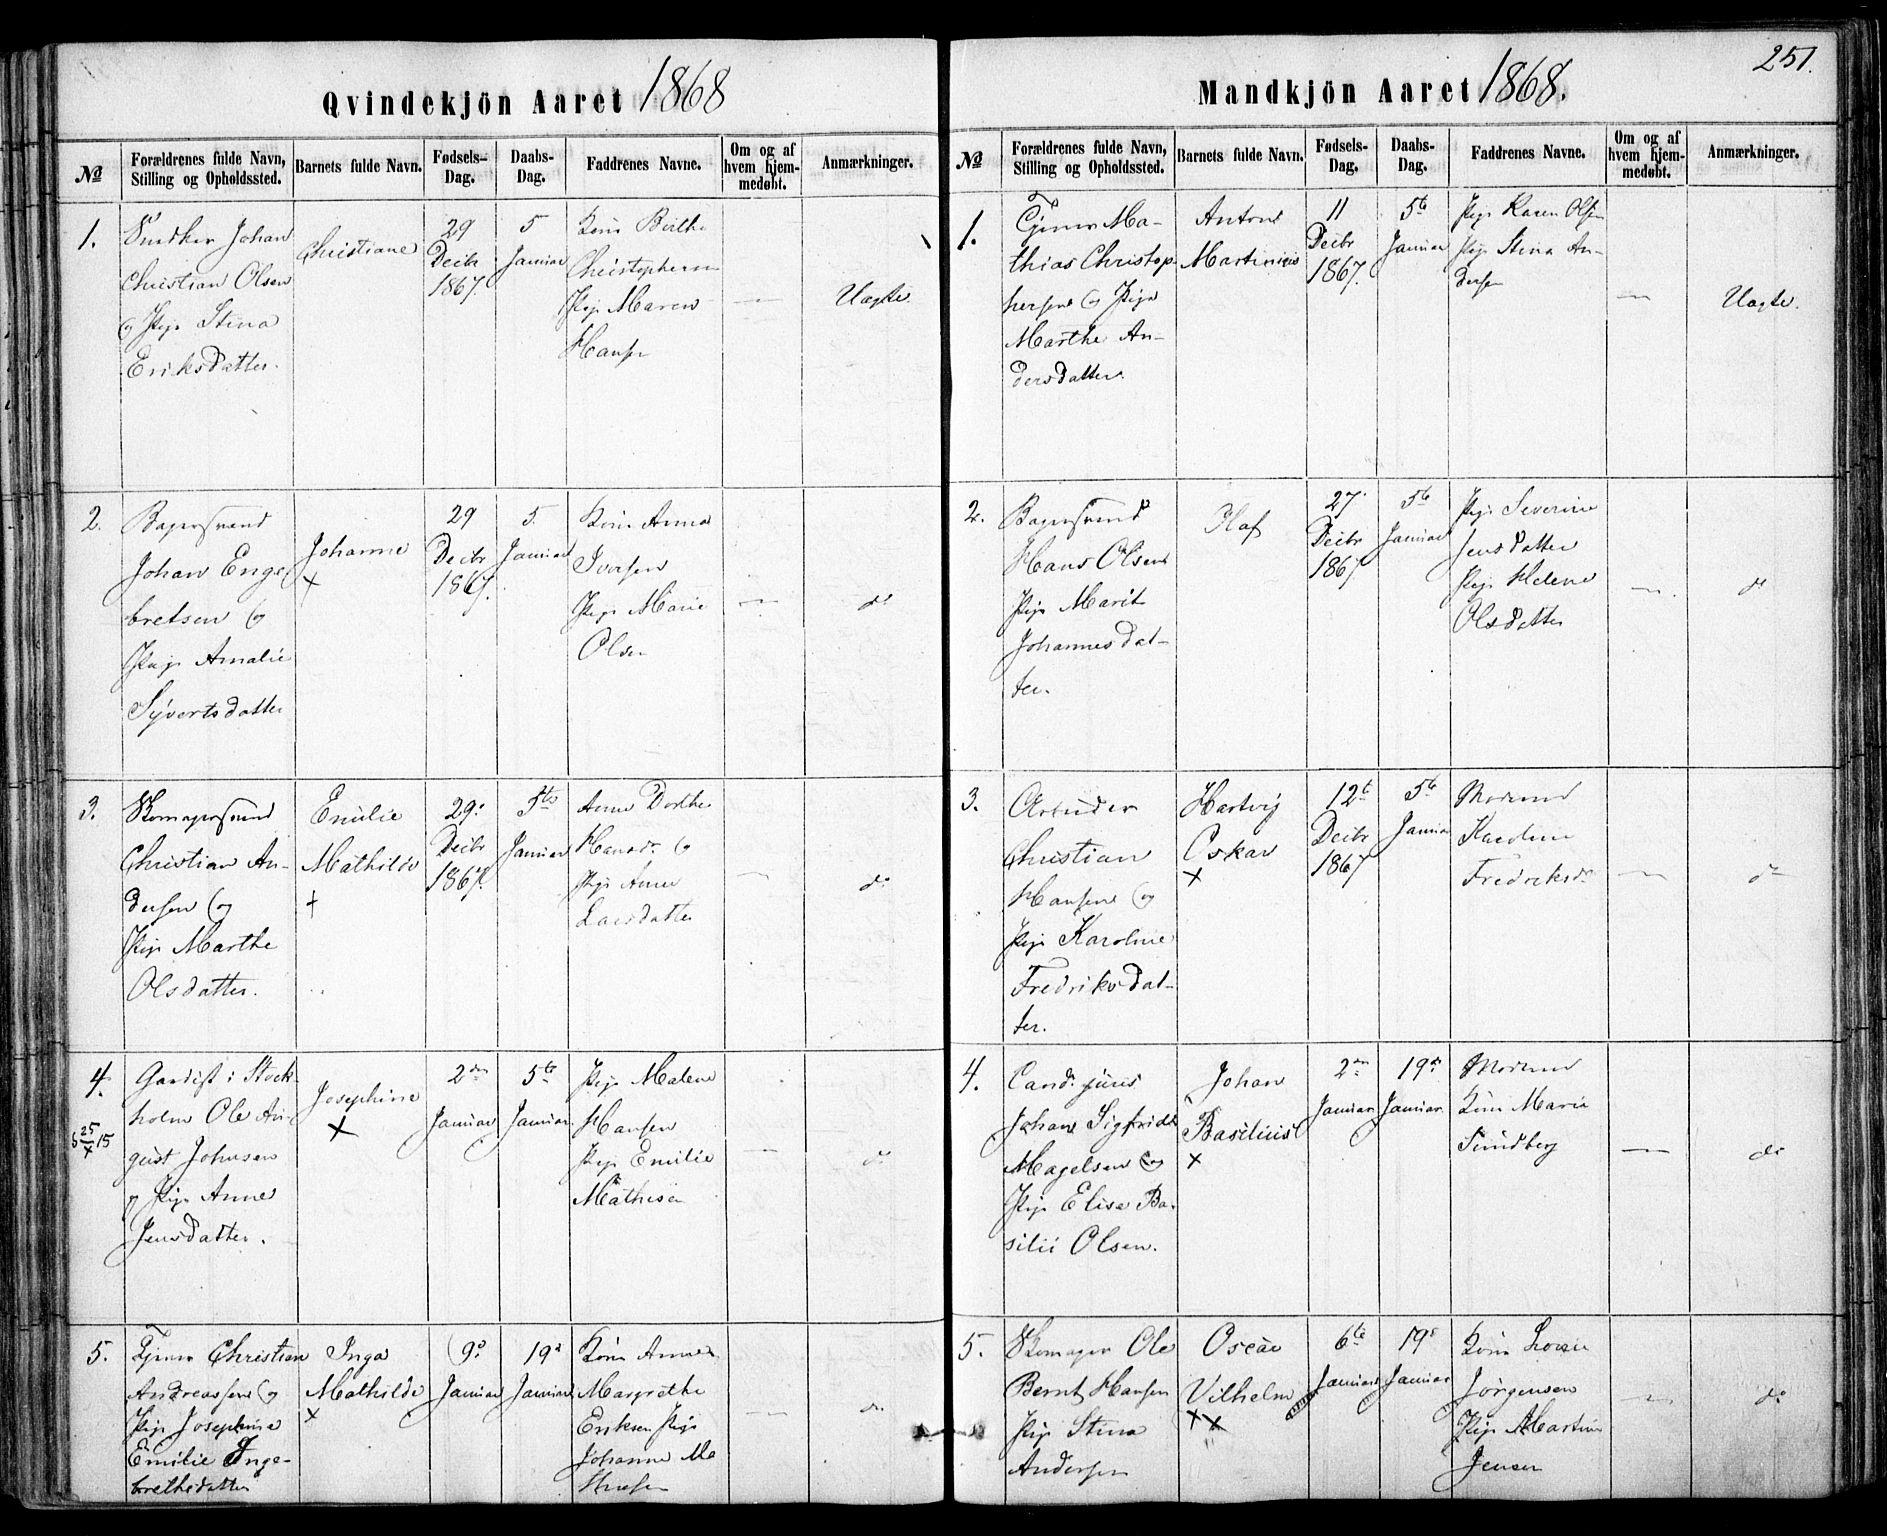 Qvindekjön Aaret 1868
№
Forældrenes fulde Navn,
Stilling og Opholdssted.
Barnets fulde Navn.
Fødsels-
Dag.
Daabs-
Dag.
Faddrenes Navne.
Om og af
hvem hjem-
medøbt.
Anmærkninger.
1.
Snedker Johan
Christian Olsen
og Pige Stina
Eriksdatter.
Christiane
29
Decbr
1867.
5
Januar
Kone Birthe
Christophersen
Pige Maren
Hansen
—
Uægte.
2.
Bagersvend
Johan Enge
bretsen og
Pige Amalie
Syvertsdatter
Johanne
×
29
Decbr
1867.
5.
Januar
Kone Anna
Iversen
Pige Marie
Olsen
—
do
3.
Skomagersvend
Christian An-
dersen og
Pige Marthe
Olsdatter.
Emilie
Mathilde
+
29.
Decbr
1867.
5te
Januar
Anne Dorthe
Hansd. og
Pige Anne
Larsdatter
—
do
4.
b 25/X 15
Gardist i Stock-
holm Ole Au-
gust Johnsen
og Pige Anne
Jensdatter.
Josephine
×
2den
Januar
5te
Januar
Pige Malene
Hansen
Pige Emilie
Mathisen
—
do
5.
Tjener Christian
Andreassen og
Pige Josephine
Emilie Inge-
brethsdatter
Inga
Mathilde
×
9de
Januar
19d
Januar
Kone Anne
Margrethe
Eriksen Pige
Johanne Ma
—
do
Mandkjön Aaret 1868.
251.
№
Forældrenes fulde Navn,
Stilling og Opholdssted.
Barnets fulde Navn.
Fødsels-
Dag.
Daabs-
Dag.
Faddrenes Navne.
Om og af
hvem hjem-
medøbt.
Anmærkninger.
1.
Tjener Ma-
thias Christop-
hersen og Pige
Marthe An-
dersdatter.
Anton
Martinius
11
Decbr
1867.
5te
Januar
Pige Karen Olsen
Pige Stina An-
dersen
—
Uægte.
2.
Bagersvend
Hans Olsen
Pige Marit
Johannesdat-
ter.
Olaf
27
Decbr
1867
5te
Januar
Pige Severine
Jensdatter
Pige Helene
Olsdatter
—
do
3.
Arbeider
Christian
Hansen og
Pige Karoline
Fredriksdat-
ter.
Hartvig
Oskar
×
12te
Decbr
1867
5te
Januar
Moderen
Karoline
Fredriksd.
—
do
4.
Cand. juris
Johan Sigfried
Magelsen og
Pige Elise Ba-
silii Olsen.
Johan
Basilius
×
2den
Januar
19de
Januar.
Moderen
Kone Marie
Sundberg
—
do
5.
Skomager Ole
Bernt Hansen
Pige Stina
Andersen
Oscar
Vilhelm
××
6te
Januar
19de
Januar
Kone Lovise
Jörgensen
Pige Martine
Jensen
—
do